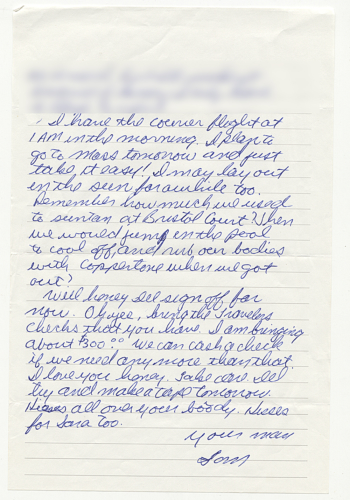 I have the courier flight at
1 AM in the morning. I plan to
go to Mass tomorrow and just
take it easy! I may lay out
in the sun for awhile too.
Remember how much we used
to suntan at Bristol Court? When
we would jump in the pool
to cool off, and rub our bodies
with Coppertone when we got
out?
Well honey I'll sign off for
now. Oh yes, bring the Travelers
checks that you have. I am bringing
about $300.00 We can cash a check
if we need any more than that.
I love you honey. Take care I'll
try and make a tape tomorrow.
Kisses all over your boody. Kisses
for Sara too.
Your man
Tom